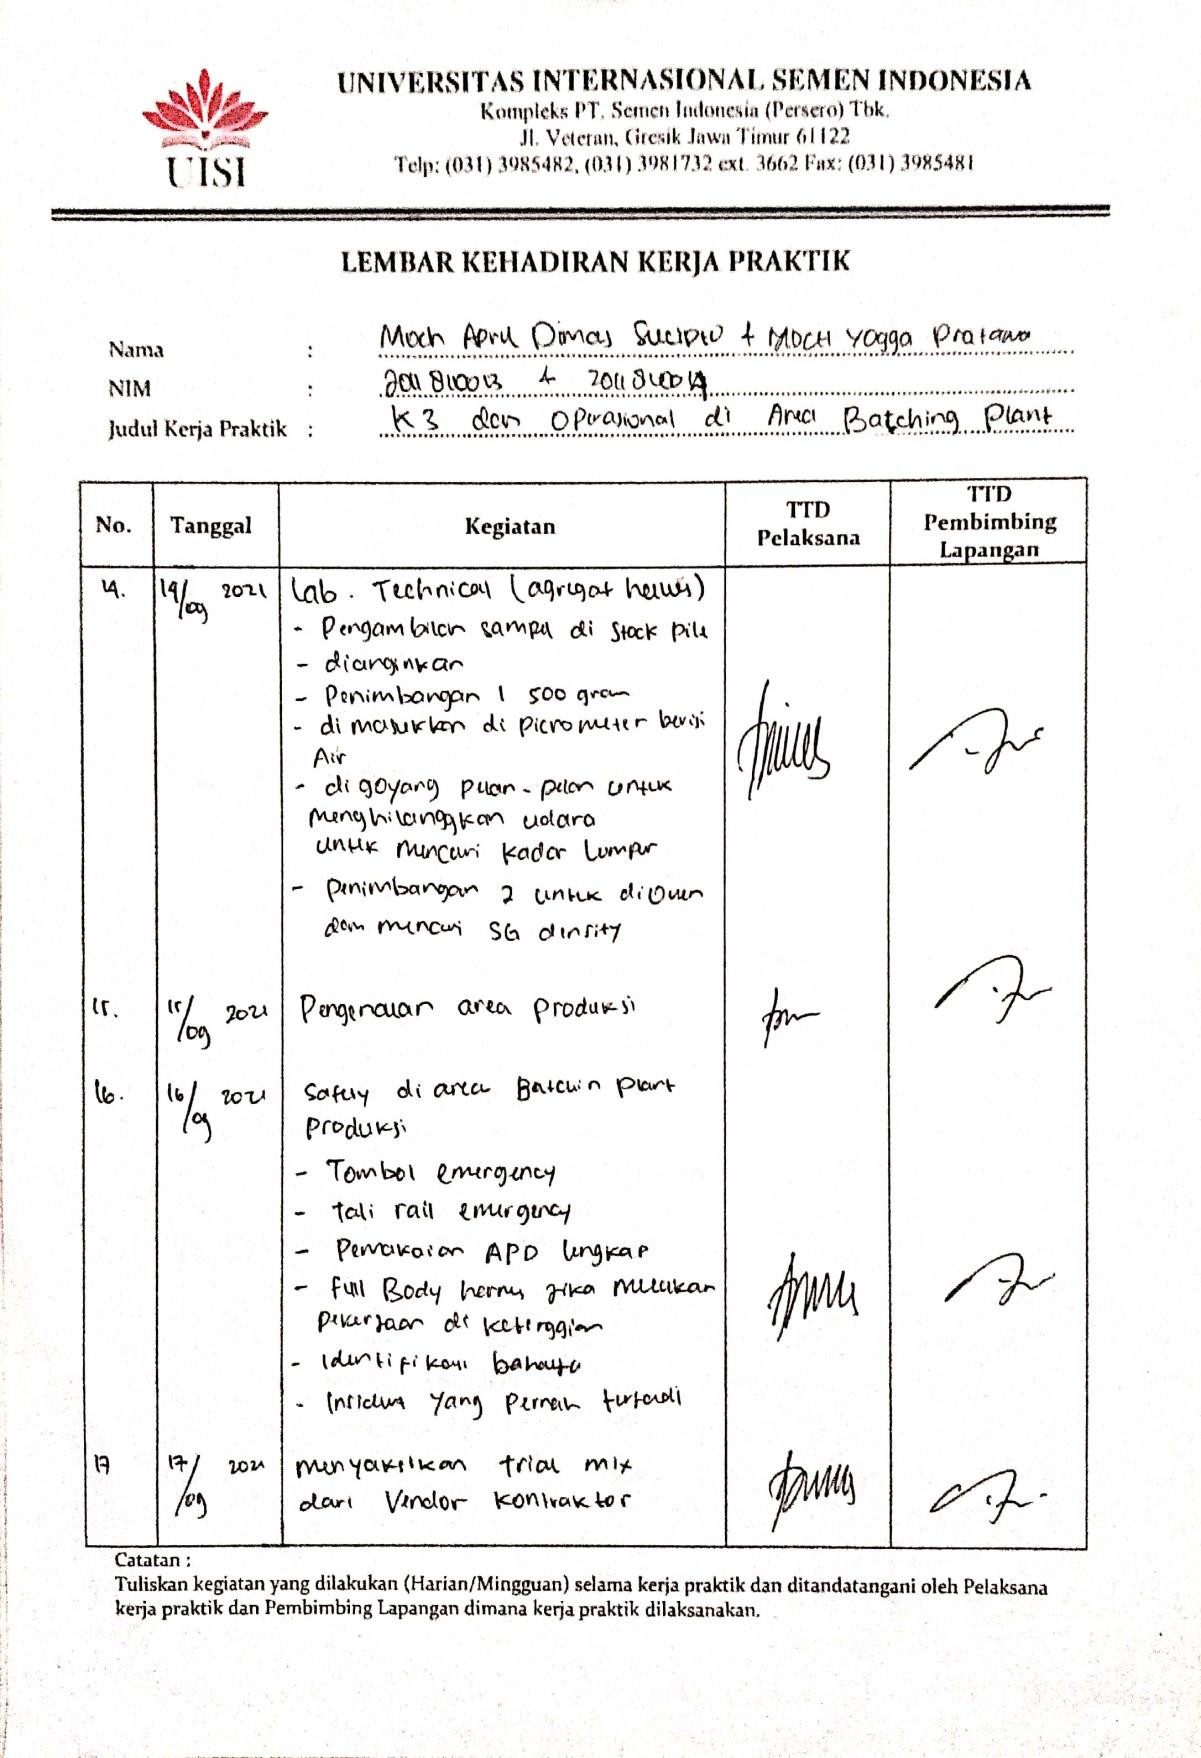 UISI
UNIVERSITAS INTERNASIONAL SEMEN INDONESIA
Kompleks PT. Semen Indonesia (Persero) Tbk.
Jl. Veteran, Gresik Jawa Timur 61122
Telp: (031) 3985482, (031) 3981732 ext. 3662 Fax: (031) 3985481
LEMBAR KEHADIRAN KERJA PRAKTIK
Nama : Moch April Dimas Sucipto + MOCH Yogga Pratama
NIM : 2011810013 + 2011810014
Judul Kerja Praktik : K3 dan Operasional di Area Batching Plant
No. Tanggal Kegiatan TTD Pelaksana TTD Pembimbing Lapangan
14. 14/09 2021 Lab. Technical (agregat halus)
- Pengambilan sampel di stock pile
- dianginkan
- Penimbangan 1 500 gram
- di masukkan di picnometer berisi
Air
- di goyang pelan-pelan untuk
menghilanggkan udara
untuk mencari kadar lumpur
- penimbangan 2 untuk di oven
dan mencari SG density
15. 15/09 2021 Pengenalan area produksi
16. 16/09 2021 Safety di area Batchin plant
produksi
- Tombol emergency
- tali rail emergency
- Pemakaian APD lengkap
- full Body hernes jika melakukan
pekerjaan di ketinggian
- Identifikasi bahaya
- Insiden yang pernah terjadi
17 17/09 2021 menyaksikan trial mix
dari Vendor kontraktor
Catatan :
Tuliskan kegiatan yang dilakukan (Harian/Mingguan) selama kerja praktik dan ditandatangani oleh Pelaksana
kerja praktik dan Pembimbing Lapangan dimana kerja praktik dilaksanakan.